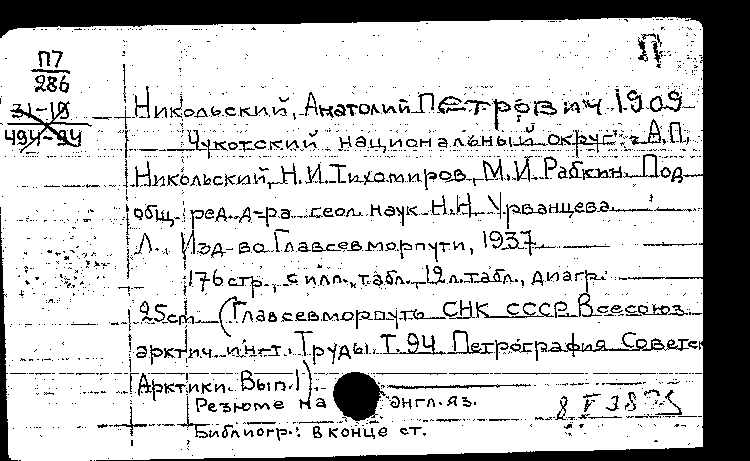 П
П7
286
31-19
494-94
Никольский, Анатолий Петрович 1909
Чукотский национальный округ. А.П.
Никольский, Н.И. Тихомиров, М.И. Рабкин. Под
общ. ред. д-ра геол. наук Н.Н. Урванцева.
Л., Изд-во Главсевморпути, 1937.
176 стр., с илл., табл., 12 л. табл., диагр.
25 см. (Главсевморпуть СНК СССР. Всесоюз.
арктич. инст. Труды. Т. 94. Петрография Советск
Арктики. Вып. 1).
Резюме на англ. яз.
Библиогр.: в конце ст.